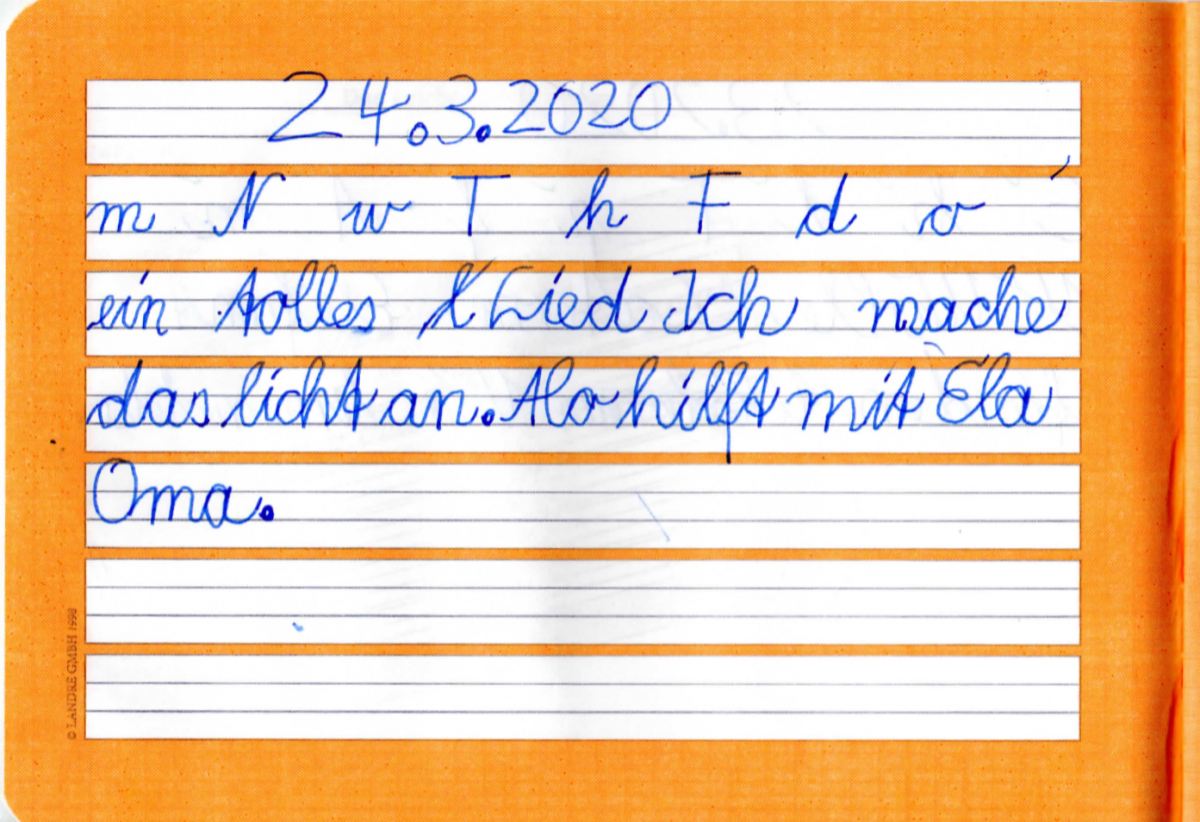 24.3.2020
m N w T h F d o
ein tolles Lied Ich mache
das licht an. Alo hilft mit Ela
Oma.
© LANDRÉ GMBH 1998